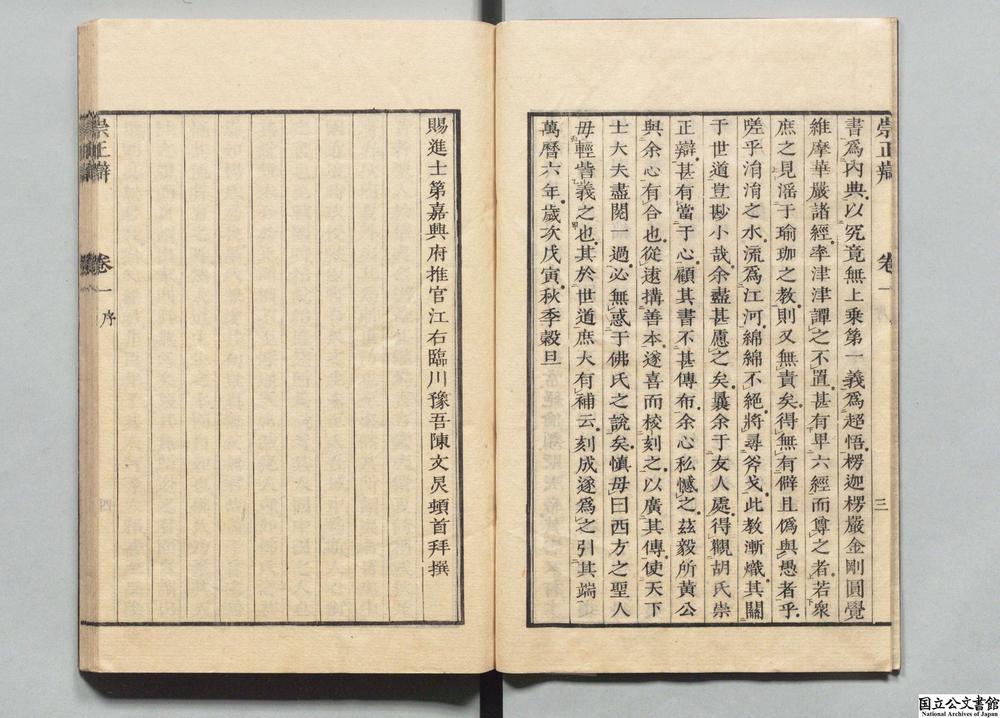 崇正辯 卷一 序 三
書爲內典以究竟無上乘第一義爲超悟楞迦楞嚴金剛圓覺
維摩華嚴諸經率津津譚之不置甚有卑六經而尊之者若衆
庶之見滛于瑜珈之教則又無責矣得無有僻且僞與愚者乎
嗟乎涓涓之水流爲江河綿綿不絕將尋斧戈此教漸熾其關
于世道豈尠小哉余盡甚慮之矣曩余于友人處得觀胡氏崇
正辯甚有當于心顧其書不甚傳布余心私憾之玆毅所黄公
與余心有合也從遠搆善本遂喜而梭刻之以廣其傳使天下
士大夫盡閱一過必無惑于佛氏之說矣慎毋曰西方之聖人
毋輕訾義之也其於世道庶大有補云刻成遂爲之引其端
萬曆六年歲次戊寅秋季穀旦
賜進士第嘉興府推官江右臨川豫吾陳文炅頓首拜撰
崇正辯 卷一 序 四
国立公文書館
National Archives of Japan